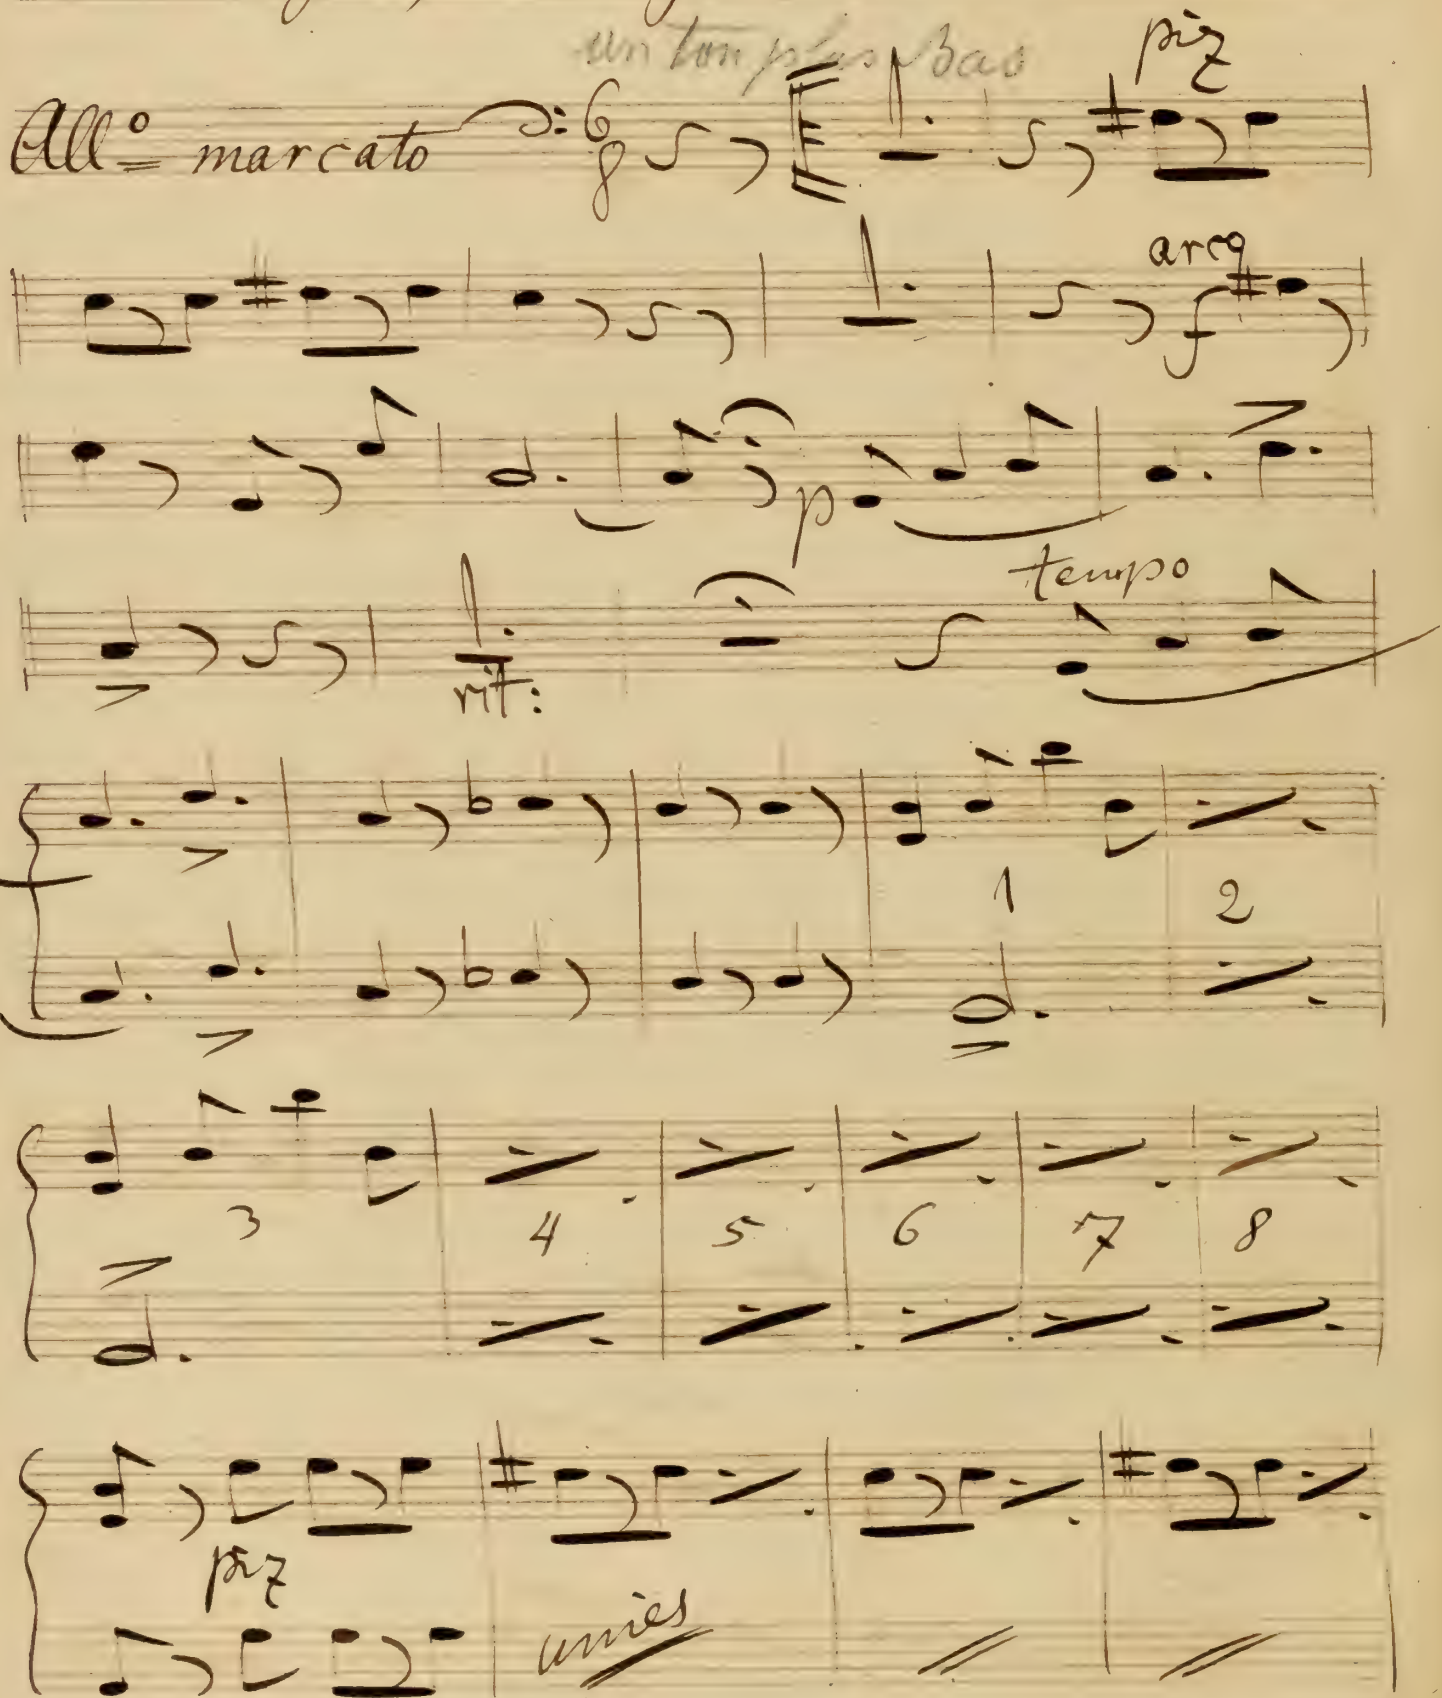 un ton plus Bas
piz
All° marcato 6 8
arco
f
p
tempo
rit:
1 2
3 4 5 6 7 8
piz
unies